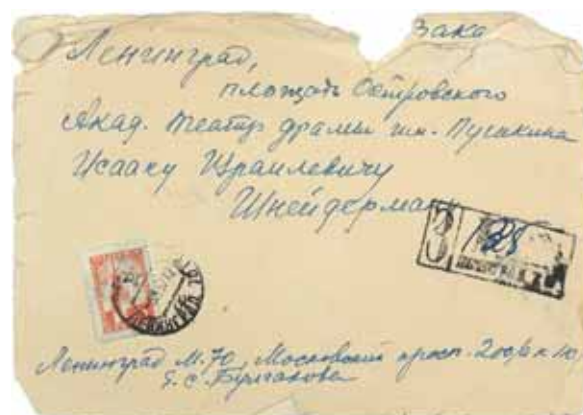 Зака
Ленинград,
площадь Островского
Акад. театр драмы им. Пушкина
Исааку Израилевичу
Шнейдерману
З
ЛЕНИНГРАД
Ленинград М-70, Московский просп.
Е. С. Булгакова